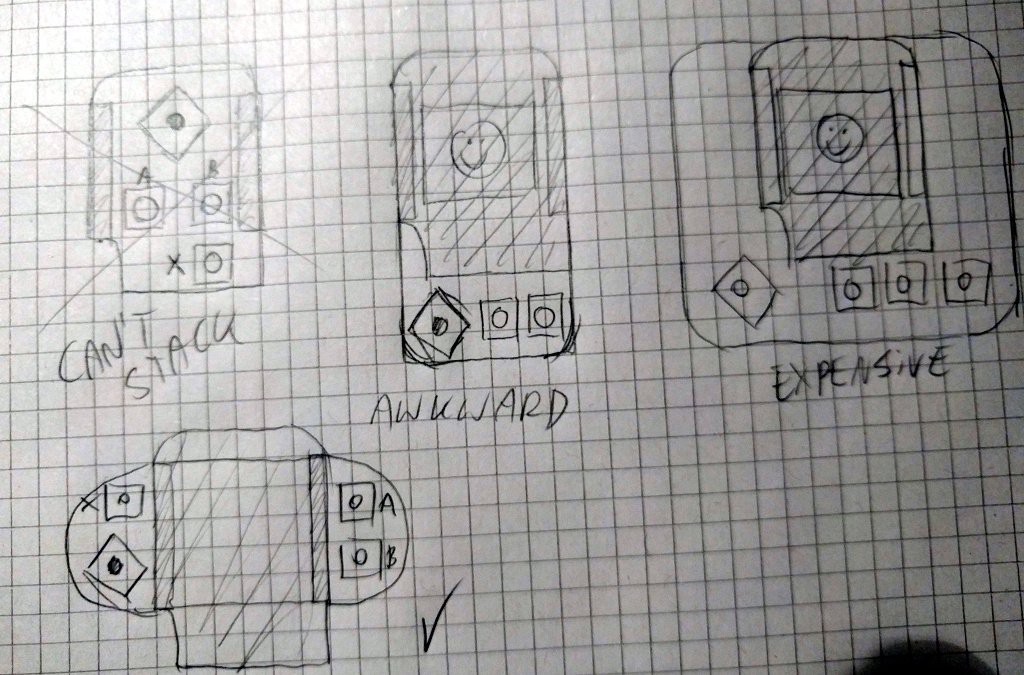 A B
X
CAN'T
STACK
AWKWARD
EXPENSIVE
X A
B